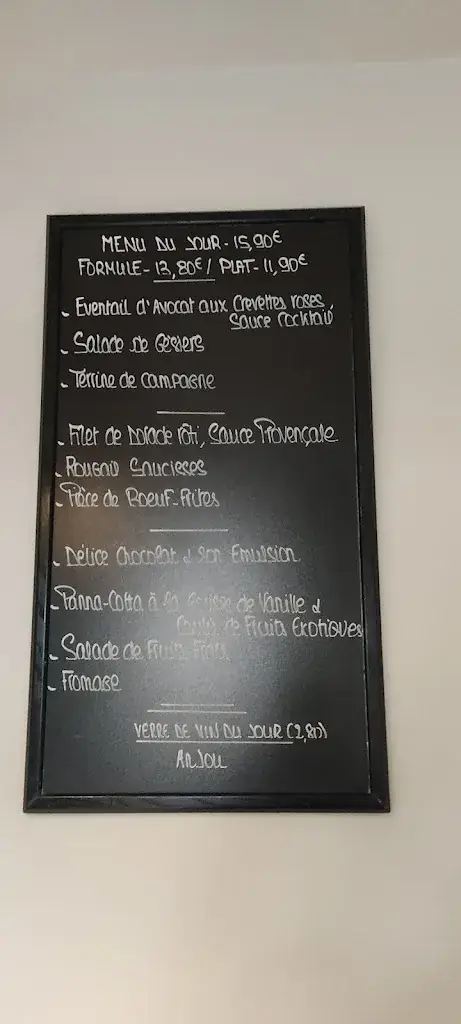 MENU DU JOUR - 15,90€
FORMULE - 13,80€ / PLAT - 11,90€
- Eventail d'Avocat aux Crevettes roses,
Sauce Cocktail
- Salade de Gésiers
- Terrine de Campagne
- Filet de Dorade rôti, Sauce Provençale
- Rougail Saucisses
- Pièce de Boeuf-Frites
- Délice Chocolat & Son Emulsion
- Panna-Cotta à la Gousse de Vanille &
Coulis de Fruits Exotiques
- Salade de Fruits Frais
- Fromage
VERRE DE VIN DU JOUR (2,80)
ANJOU